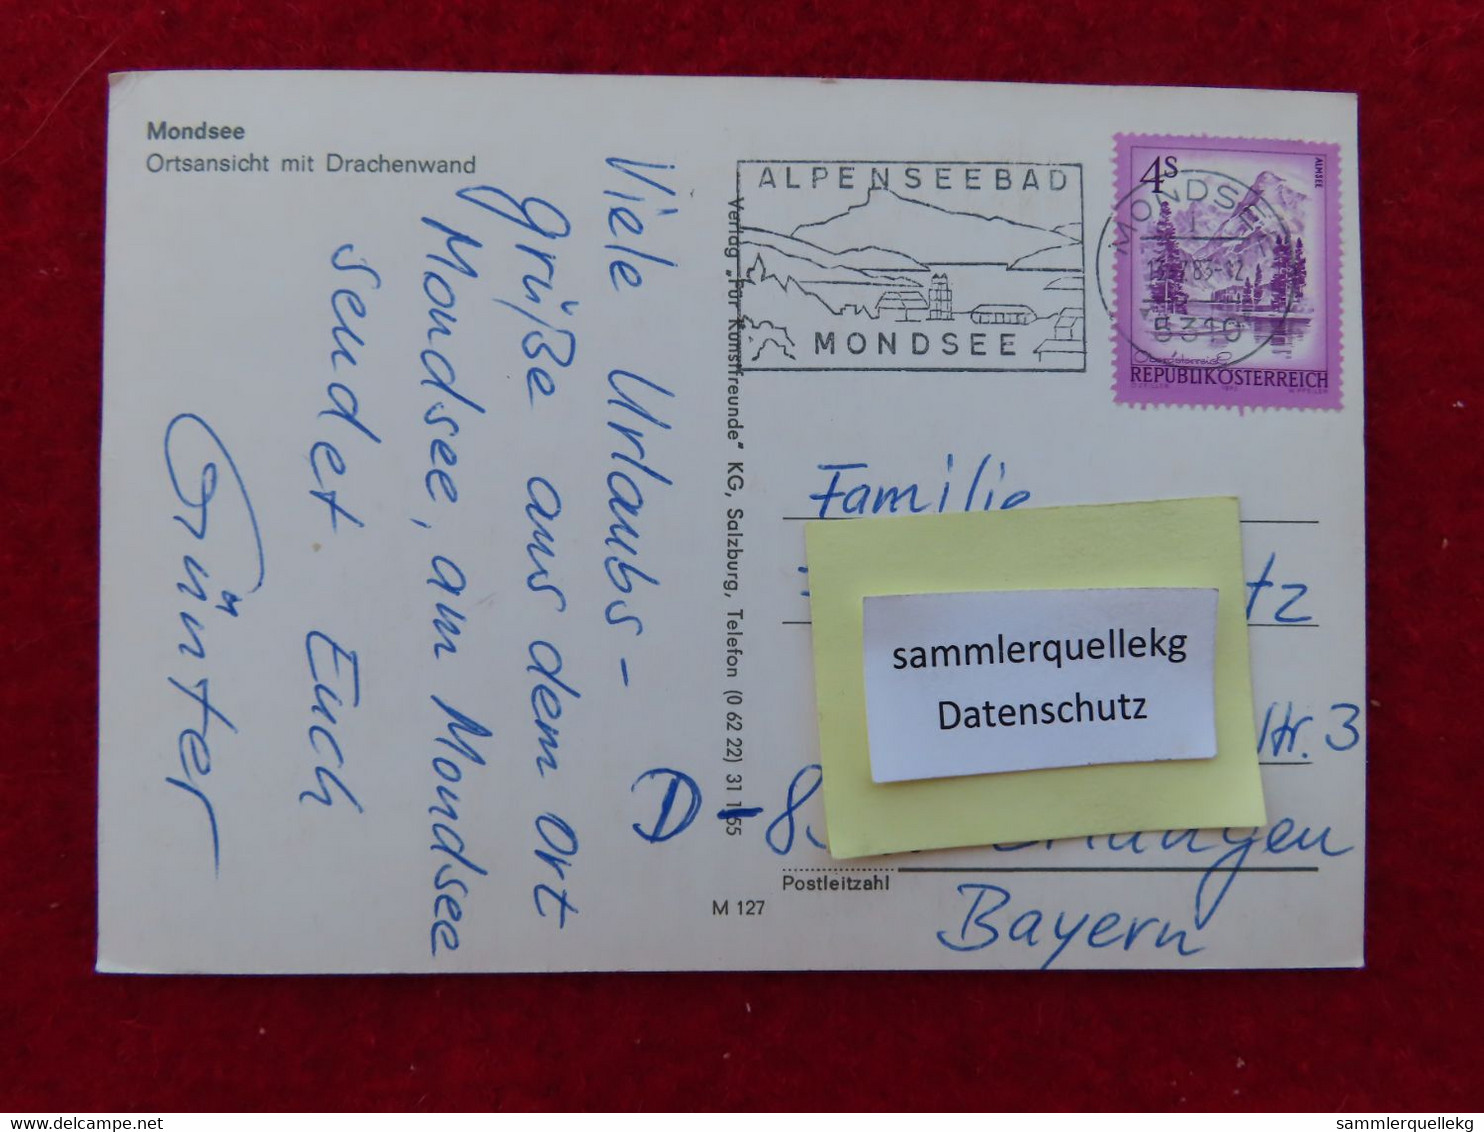 Mondsee
Ortsansicht mit Drachenwand
Viele Urlaubs-
grüße aus dem Ort
Mondsee, am Mondsee
sendet Euch
Günter
Verlag „Für Kunstfreunde“ KG, Salzburg, Telefon (0 62 22) 31 1 55
M 127
ALPENSEEBAD
MONDSEE
4S
ALMSEE
MONDSEE
5310
Oberösterreich
REPUBLIK ÖSTERREICH
Familie
tz
sammlerquellekg
Datenschutz
Str. 3
D-8 Erlangen
Postleitzahl
Bayern
delcampe.net
sammlerquellekg